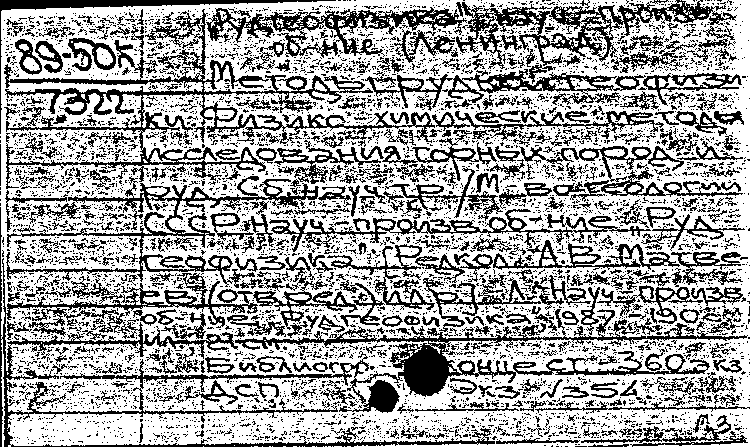 "Рудгеофизика", науч.-произв.
об-ние (Ленинград)
89-50к
7322
Методы рудной геофизи
ки. Физико-химические методы
исследования горных пород и
руд. Сб. науч. тр. / М-во геологии
СССР. Науч.-произв. об-ние "Руд
геофизика"; [Редкол. А.В. Матве
ев (отв. ред.) и др.]. Л.: Науч.-произв.
об-ние "Рудгеофизика", 1987. - 190 с.
ил.; 21 см.
Библиогр. конце ст. - 360 экз.
ДСП. Экз. №354